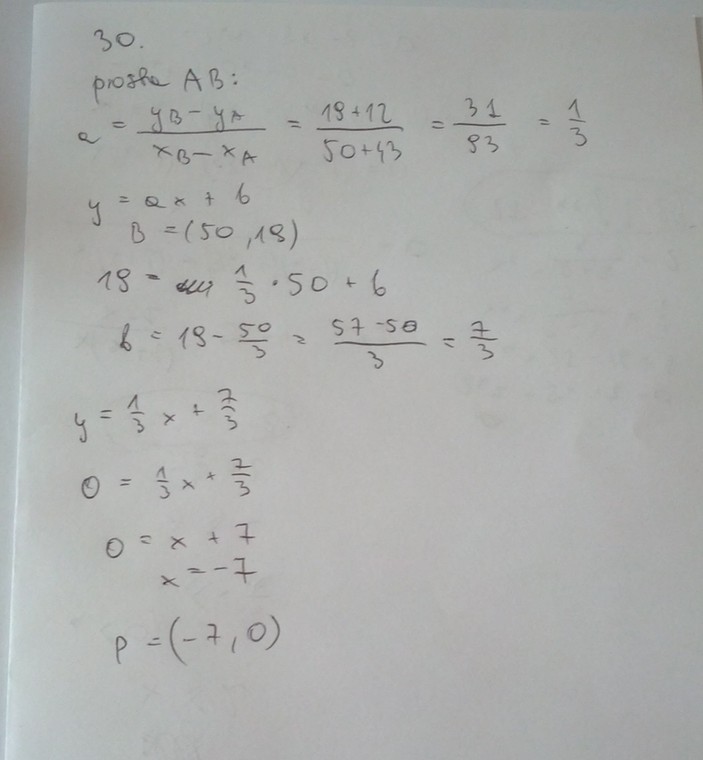 30.
prosta AB:
a = \frac{y_B - y_A}{x_B - x_A} = \frac{19+12}{50+43} = \frac{31}{93} = \frac{1}{3}
y = ax + b
B = (50, 19)
19 = \frac{1}{3} \cdot 50 + b
b = 19 - \frac{50}{3} = \frac{57-50}{3} = \frac{7}{3}
y = \frac{1}{3} x + \frac{7}{3}
0 = \frac{1}{3} x + \frac{7}{3}
0 = x + 7
x = -7
P = (-7, 0)